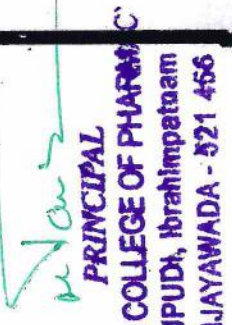 PRINCIPAL
COLLEGE OF PHARMAC
IPUDI, Ibrahimpatnam
IJAYAWADA - 521 456